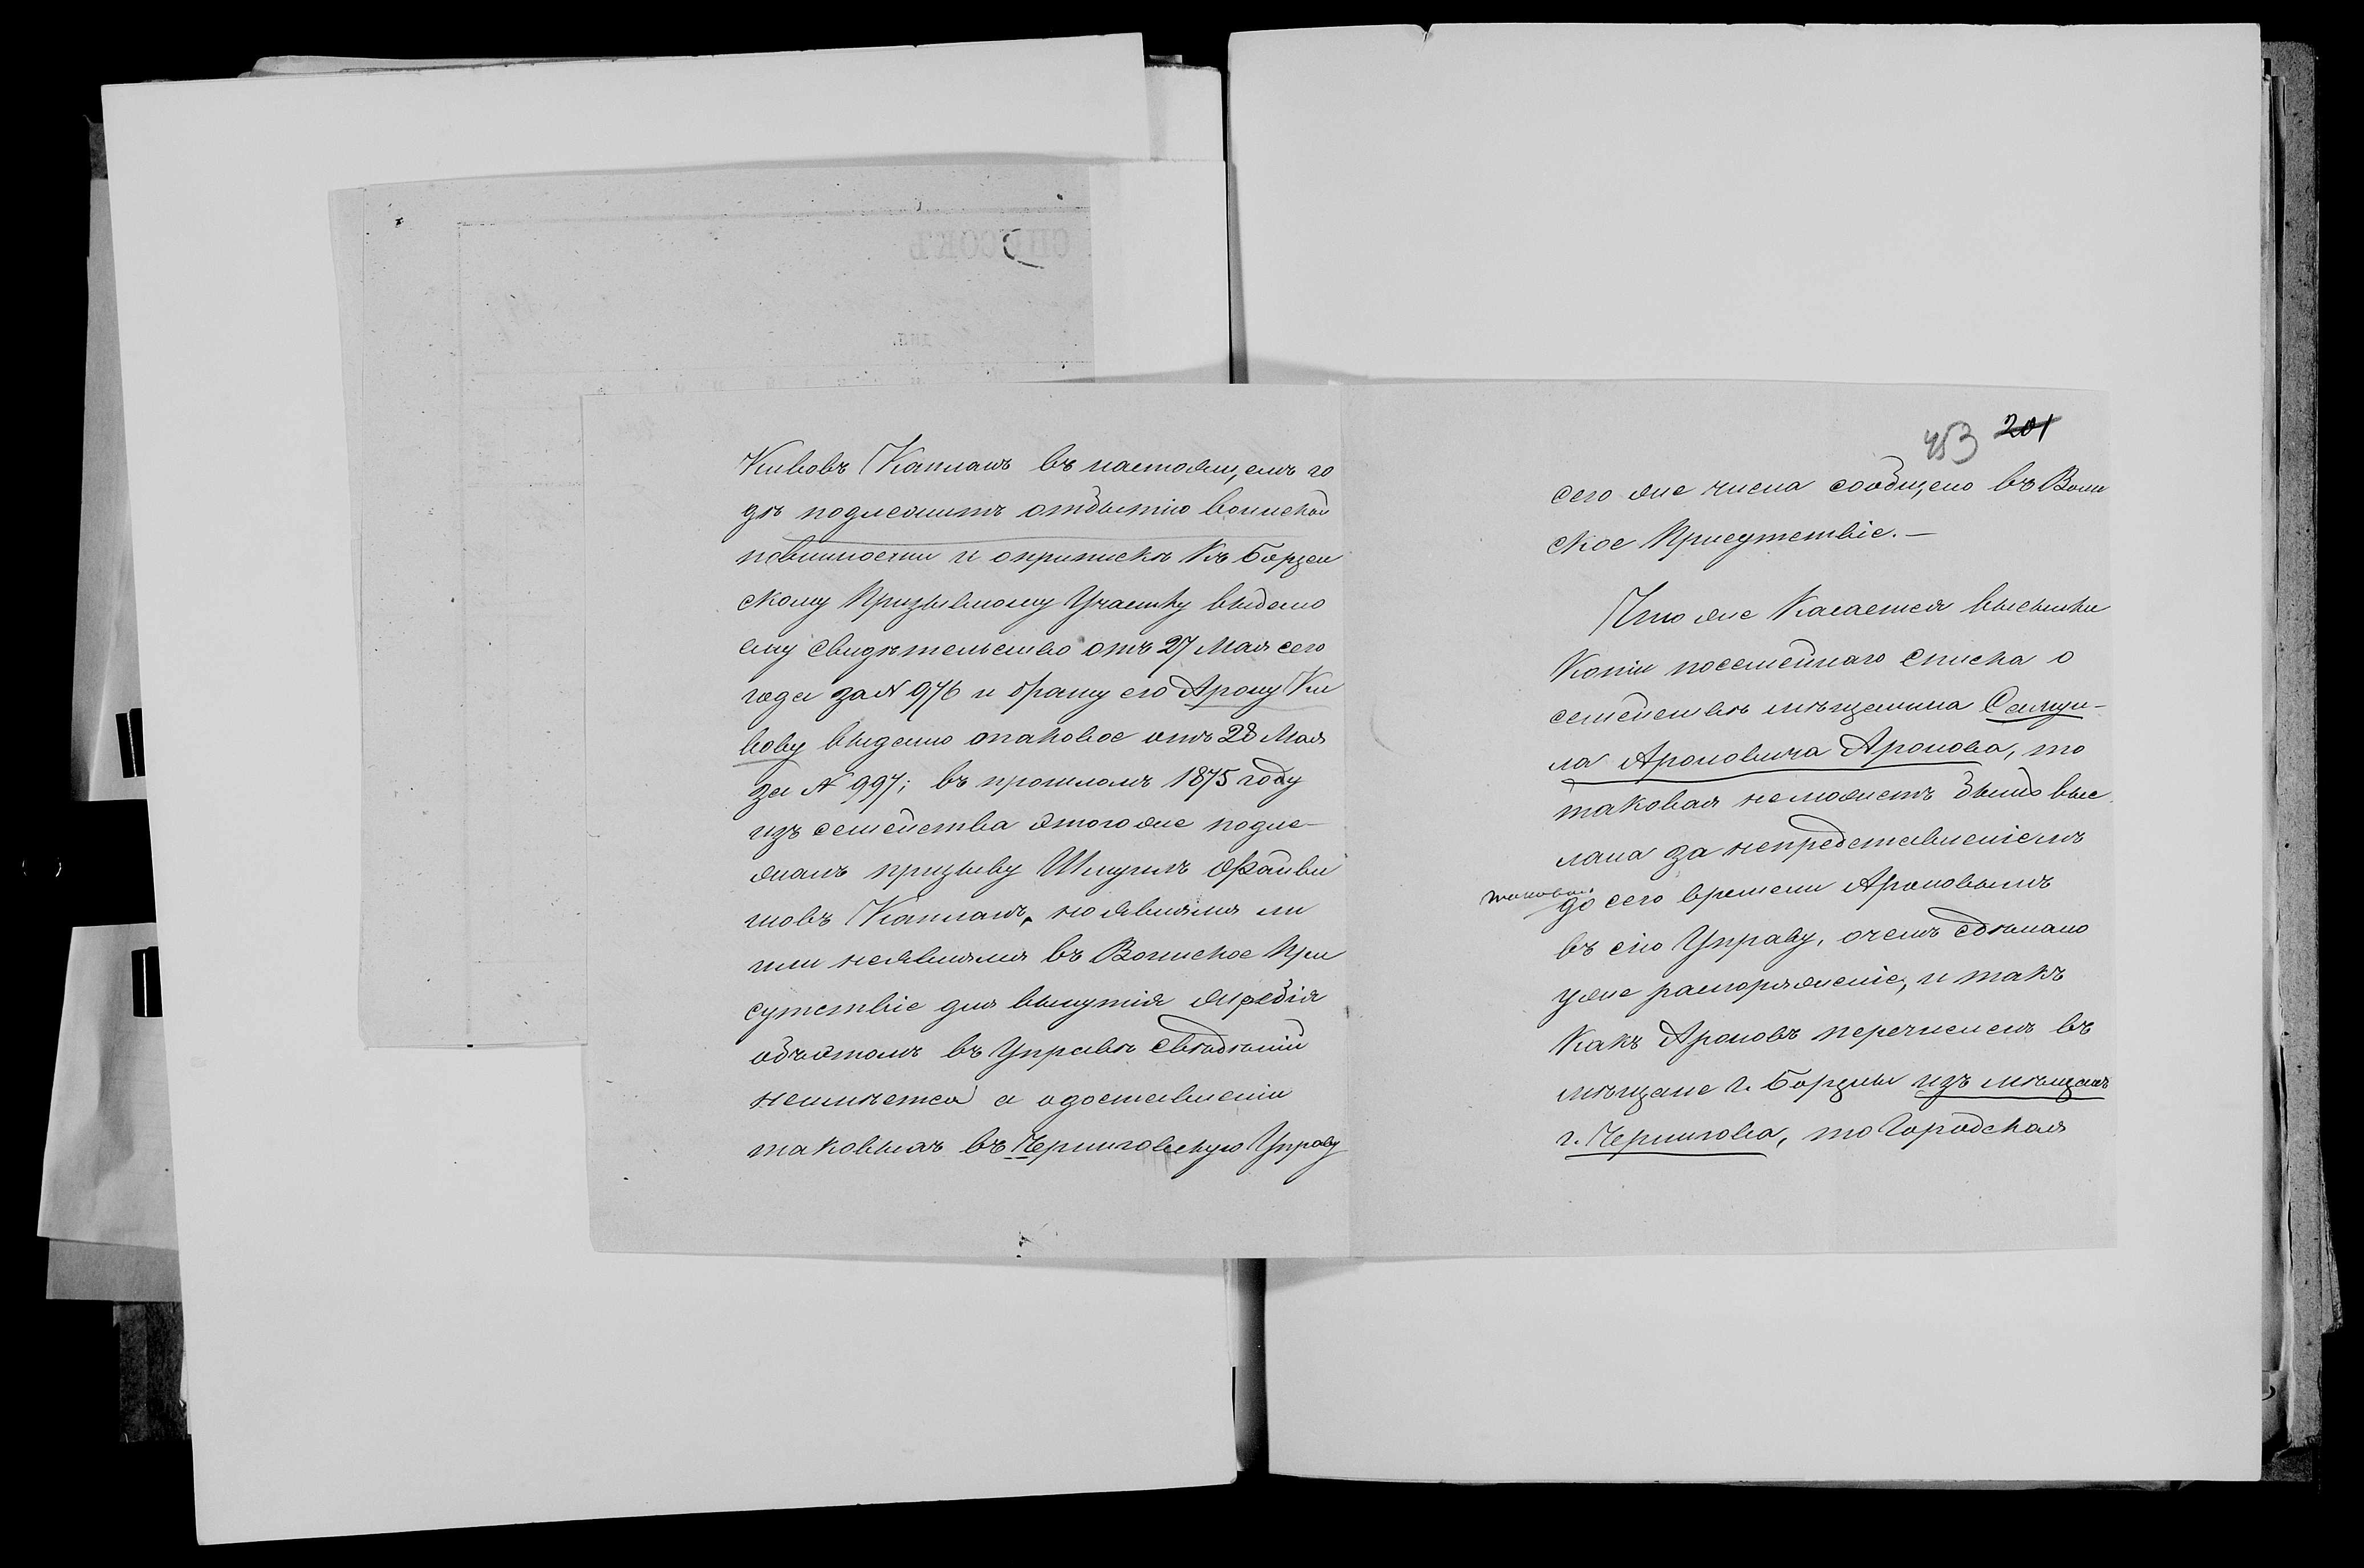 Кивовъ Капланъ въ настоящемъ го
дѣ подлежитъ отбытію воинской
повинности и о припискѣ къ Борзен
скому Призывному Участку выдано
ему свидѣтельство отъ 27 Мая сего
года за № 976 и брату его Арону Ки
вову выдано таковое отъ 28 Мая
за № 997; въ прошломъ 1875 году
изъ семейства этого же подле-
жалъ призыву Шмуилъ Файви
шовъ Капланъ, но явился ли
или неявился въ Воинское При
сутствіе для вынутія жребія
объ этомъ въ Управѣ свѣдѣній
неимѣется а о доставленіи
таковыхъ въ Черниговскую Управу
453 201
сего же числа сообщено въ Воин
ское Присутствіе.—
Что же касается высылки
копіи посемейнаго списка о
семействѣ мѣщанина Самуи-
ла Ароновича Аронова, то
таковая неможетъ быть выс
лана за непредставленіемъ
таковой
до сего времени Ароновымъ
въ сію Управу, о чемъ сдѣлано
уже распоряженіе, и такъ
какъ Ароновъ перечисленъ въ
мѣщане г. Борзны изъ мѣщанъ
г. Чернигова, то Городская
СПИСОКЪ